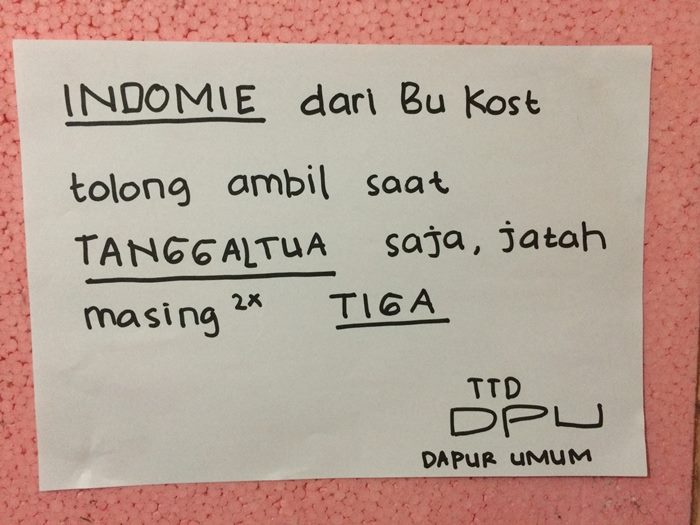 INDOMIE dari Bu Kost
tolong ambil saat
TANGGALTUA saja, jatah
masing 2x TIGA
TTD
DPU
DAPUR UMUM